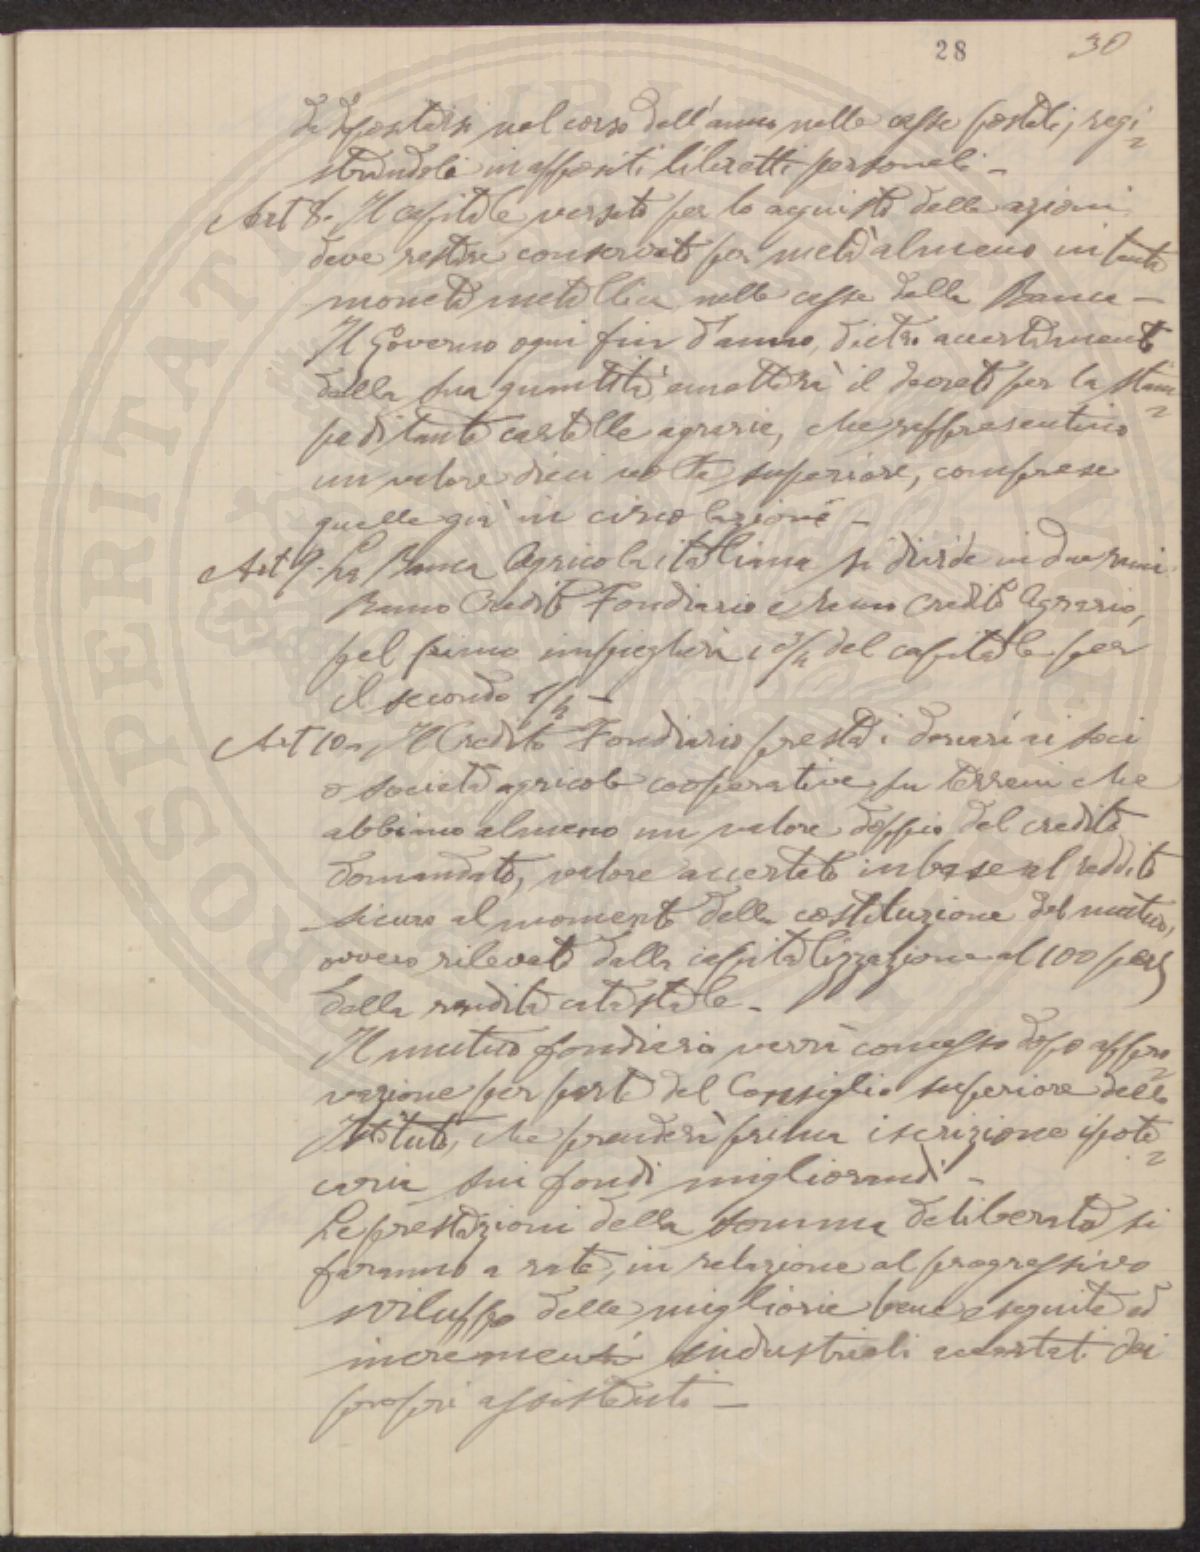 28 30
da depositarsi nel corso dell'anno nelle casse postali, regi=
strandole in appositi libretti personali -
Art 8. Il capitale versato per lo acquisto delle azioni
deve restare conservato per metà almeno in tanta
moneta metallica nelle casse della Banca -
Il Governo ogni fin d'anno, dietro accertamento
della sua quantità emetterà il decreto per la stam=
pa di tante cartelle agrarie, che rappresentino
un valore dieci volte superiore, comprese
quelle già in circolazione -
Art 9. La Banca Agricola italiana si divide in due rami
Ramo Credito Fondiario e ramo Credito Agrario,
pel primo impiegherà i 3/4 del capitale per
il secondo 1/4 -
Art 10 - Il Credito Fondiario presta i denari ai soci
o società agricole cooperative su terreni che
abbiano almeno un valore doppio del credito
domandato, valore accertato in base al reddito
sicuro al momento della costituzione del mutuo,
ovvero rilevato dalla capitalizzazione al 100 per 5
della rendita catastale -
Il mutuo fondiario verrà concesso dopo appro=
vazione per parte del Consiglio superiore dello
Istituto, che prenderà prima iscrizione ipote=
caria sui fondi migliorandi -
Le prestazioni della somma deliberata si
faranno a rate, in relazione al progressivo
sviluppo delle migliorie bene eseguite ed
incrementi industriali accertati dai
propri assistenti -
PROSPERITATI PUBLICAE